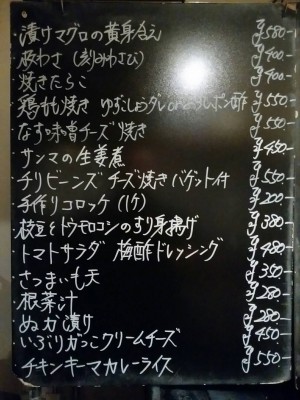 ・漬けマグロの黄身和え ¥580-
・板わさ（刻みわさび） ¥400-
・焼きたらこ ¥400-
・鶏もも焼き ゆずこしょうダレorおろしポン酢 ¥550-
・なす味噌チーズ焼き ¥550-
・サンマの生姜煮 ¥450-
・チリビーンズ チーズ焼き バゲット付 ¥550-
・手作りコロッケ（1ケ） ¥200-
・枝豆とトウモロコシのすり身揚げ ¥380-
・トマトサラダ 梅酢ドレッシング ¥480-
・さつまいも天 ¥350-
・根菜汁 ¥280-
・ぬか漬け ¥280-
・いぶりがっこクリームチーズ ¥450-
・チキンキーマカレーライス ¥550-